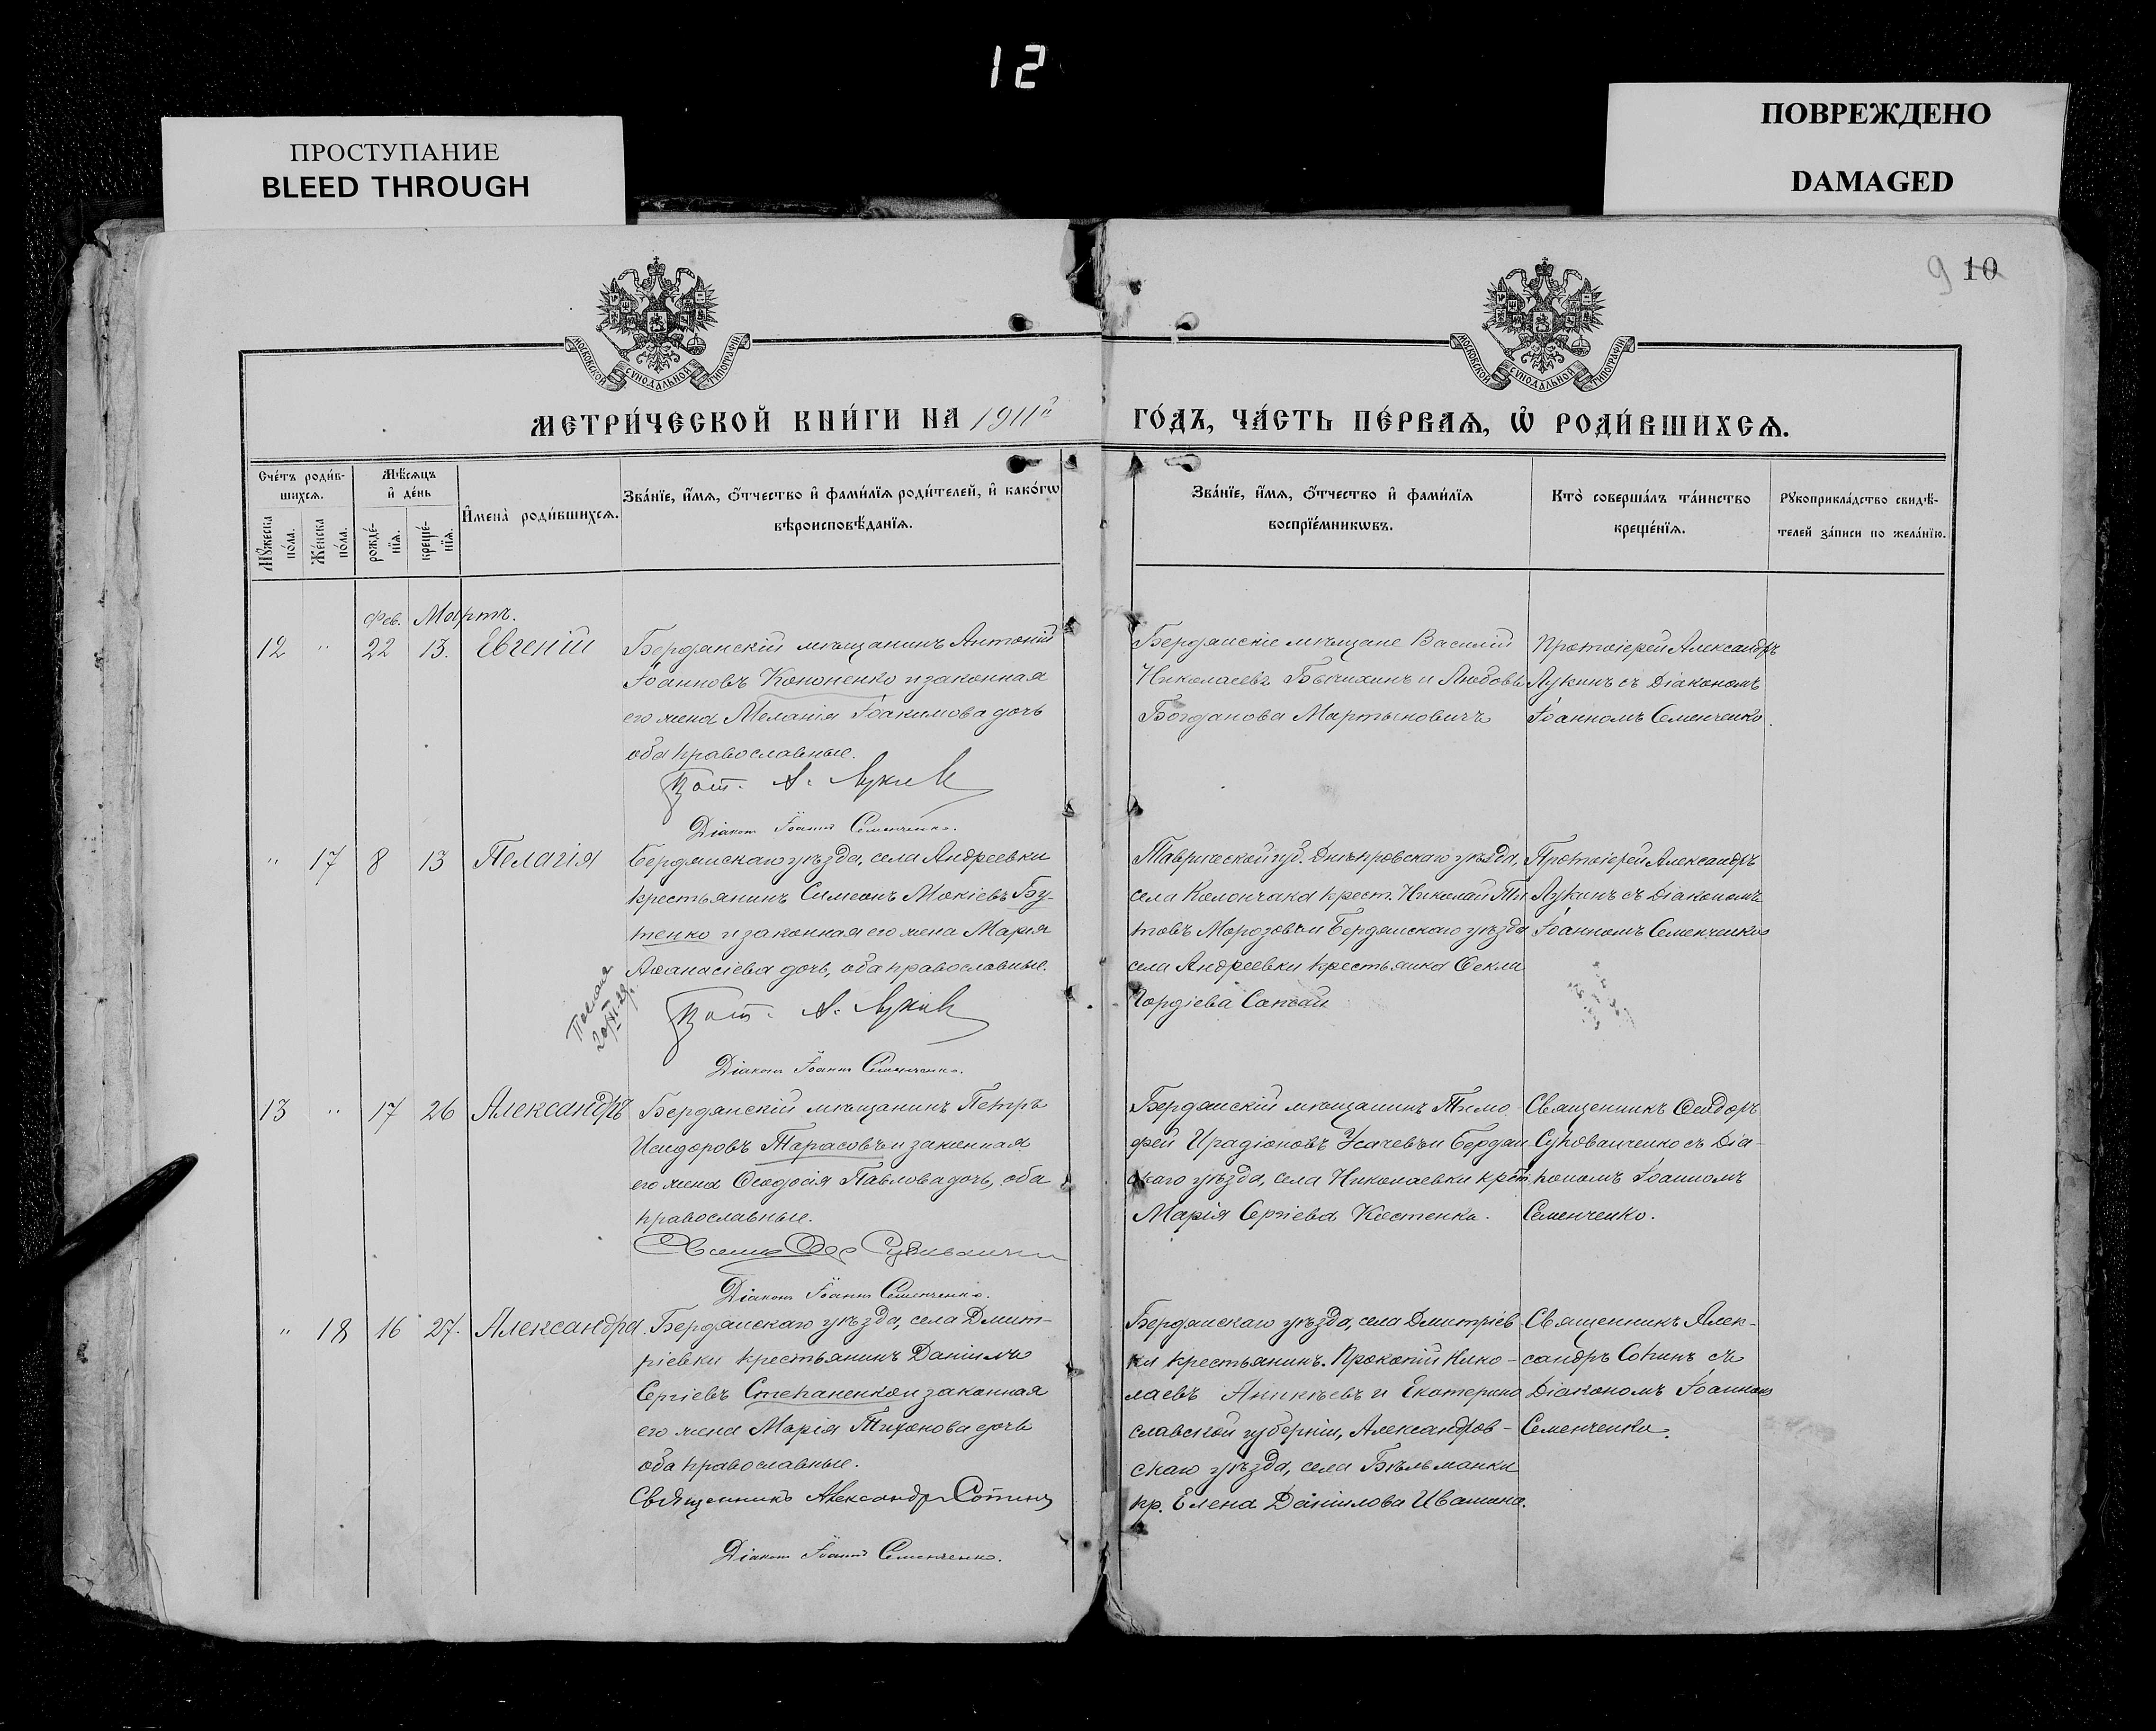 12
ПРОСТУПАНИЕ
BLEED THROUGH
ПОВРЕЖДЕНО
DAMAGED
9 10
МОСКОВСКОЙ СУНОДАЛЬНОЙ ТИПОГРАФІИ
МОСКОВСКОЙ СУНОДАЛЬНОЙ ТИПОГРАФІИ
МЕТРИ́ЧЕСКОЙ КНИ́ГИ НА 1911й
ГО́ДЪ, ЧА́СТЬ ПЕ́РВАѦ, Ѽ РОДИ́ВШИХСѦ.
Сче́тъ роди́в-
шихсѧ.
Мꙋжеска по́ла.
Же́нска по́ла.
Мѣ́сѧцъ
и҆ де́нь
рожде́-
нїѧ.
креще́-
нїѧ.
И҆мена̀ роди́вшихсѧ.
Зва́нїе, и҆́мѧ, ѻ҆́тчество и҆ фами́лїѧ роди́телей, и҆ како́гѡ
вѣроисповѣ́данїѧ.
Зва́нїе, и҆́мѧ, ѻ҆́тчество и҆ фами́лїѧ
воспрїе́мникѡвъ.
Кто̀ соверша́лъ та́инство
креще́нїѧ.
Рꙋкоприкла́дство свидѣ́-
телей за́писи по жела́нїю.
Фев. Мартъ.
12 " 22 13. Евгеній
Бердянскій мѣщанинъ Антоній
Іоанновъ Кононенко и законная
его жена Меланія Іоакимова дочь
оба православные.
Прот. А. Лукин
Діакон Іоаннъ Семенченко.
Бердянскіе мѣщане Василій
Николаевъ Бычихинъ и Любовь
Богданова Мартыновичъ
Протоіерей Александръ
Лукинъ съ Діакономъ
Іоанномъ Семенченко.
" 17 8 13 Пелагія
Бердянскаго уѣзда, села Андреевки
крестьянинъ Симеонъ Мокіевъ Бу-
тенко и законная его жена Марія
Аѳанасіева дочь, оба православные.
20/XI-29.
Прот. А. Лукин
Діакон Іоаннъ Семенченко.
Таврической губ. Днѣпровскаго уѣзда,
села Колончака крест. Николай Ти
товъ Морозовъ и Бердянскаго уѣзда
села Андреевки крестьянка Ѳекла
Гордіева
Протоіерей Александръ
Лукинъ съ Діакономъ
Іоанномъ Семенченко
13 " 17 26 Александръ
Бердянскій мѣщанинъ Петръ
Исидоровъ Тарасовъ и законная
его жена Ѳеодосія Павлова дочь, оба
православные.
Діакон Іоаннъ Семенченко.
Бердянскій мѣщанинъ Тимо-
фей Ирадіоновъ Усачевъ и Бердян
скаго уѣзда, села Николаевки крест.
Марія Сергіева Костенко.
Священникъ Ѳеодоръ
Сухованченко съ Діа-
кономъ Іоанномъ
Семенченко.
" 18 16 27. Александра
Бердянскаго уѣзда, села Дмит-
ріевки крестьянинъ Даніилъ
Сергіевъ Степаненко и законная
его жена Марія Тихонова дочь
оба православные.
Священникъ Александр Сопинъ
Діакон Іоаннъ Семенченко.
Бердянскаго уѣзда, села Дмитріев
ки крестьянинъ. Прокопій Нико-
лаевъ Аникѣевъ и Екатерино
славской губерніи, Александров-
скаго уѣзда, села Бѣльманки
кр. Елена Даніилова Ивашина.
Священникъ Алек-
сандръ Сопинъ съ
Діакономъ Іоанномъ
Семенченко.